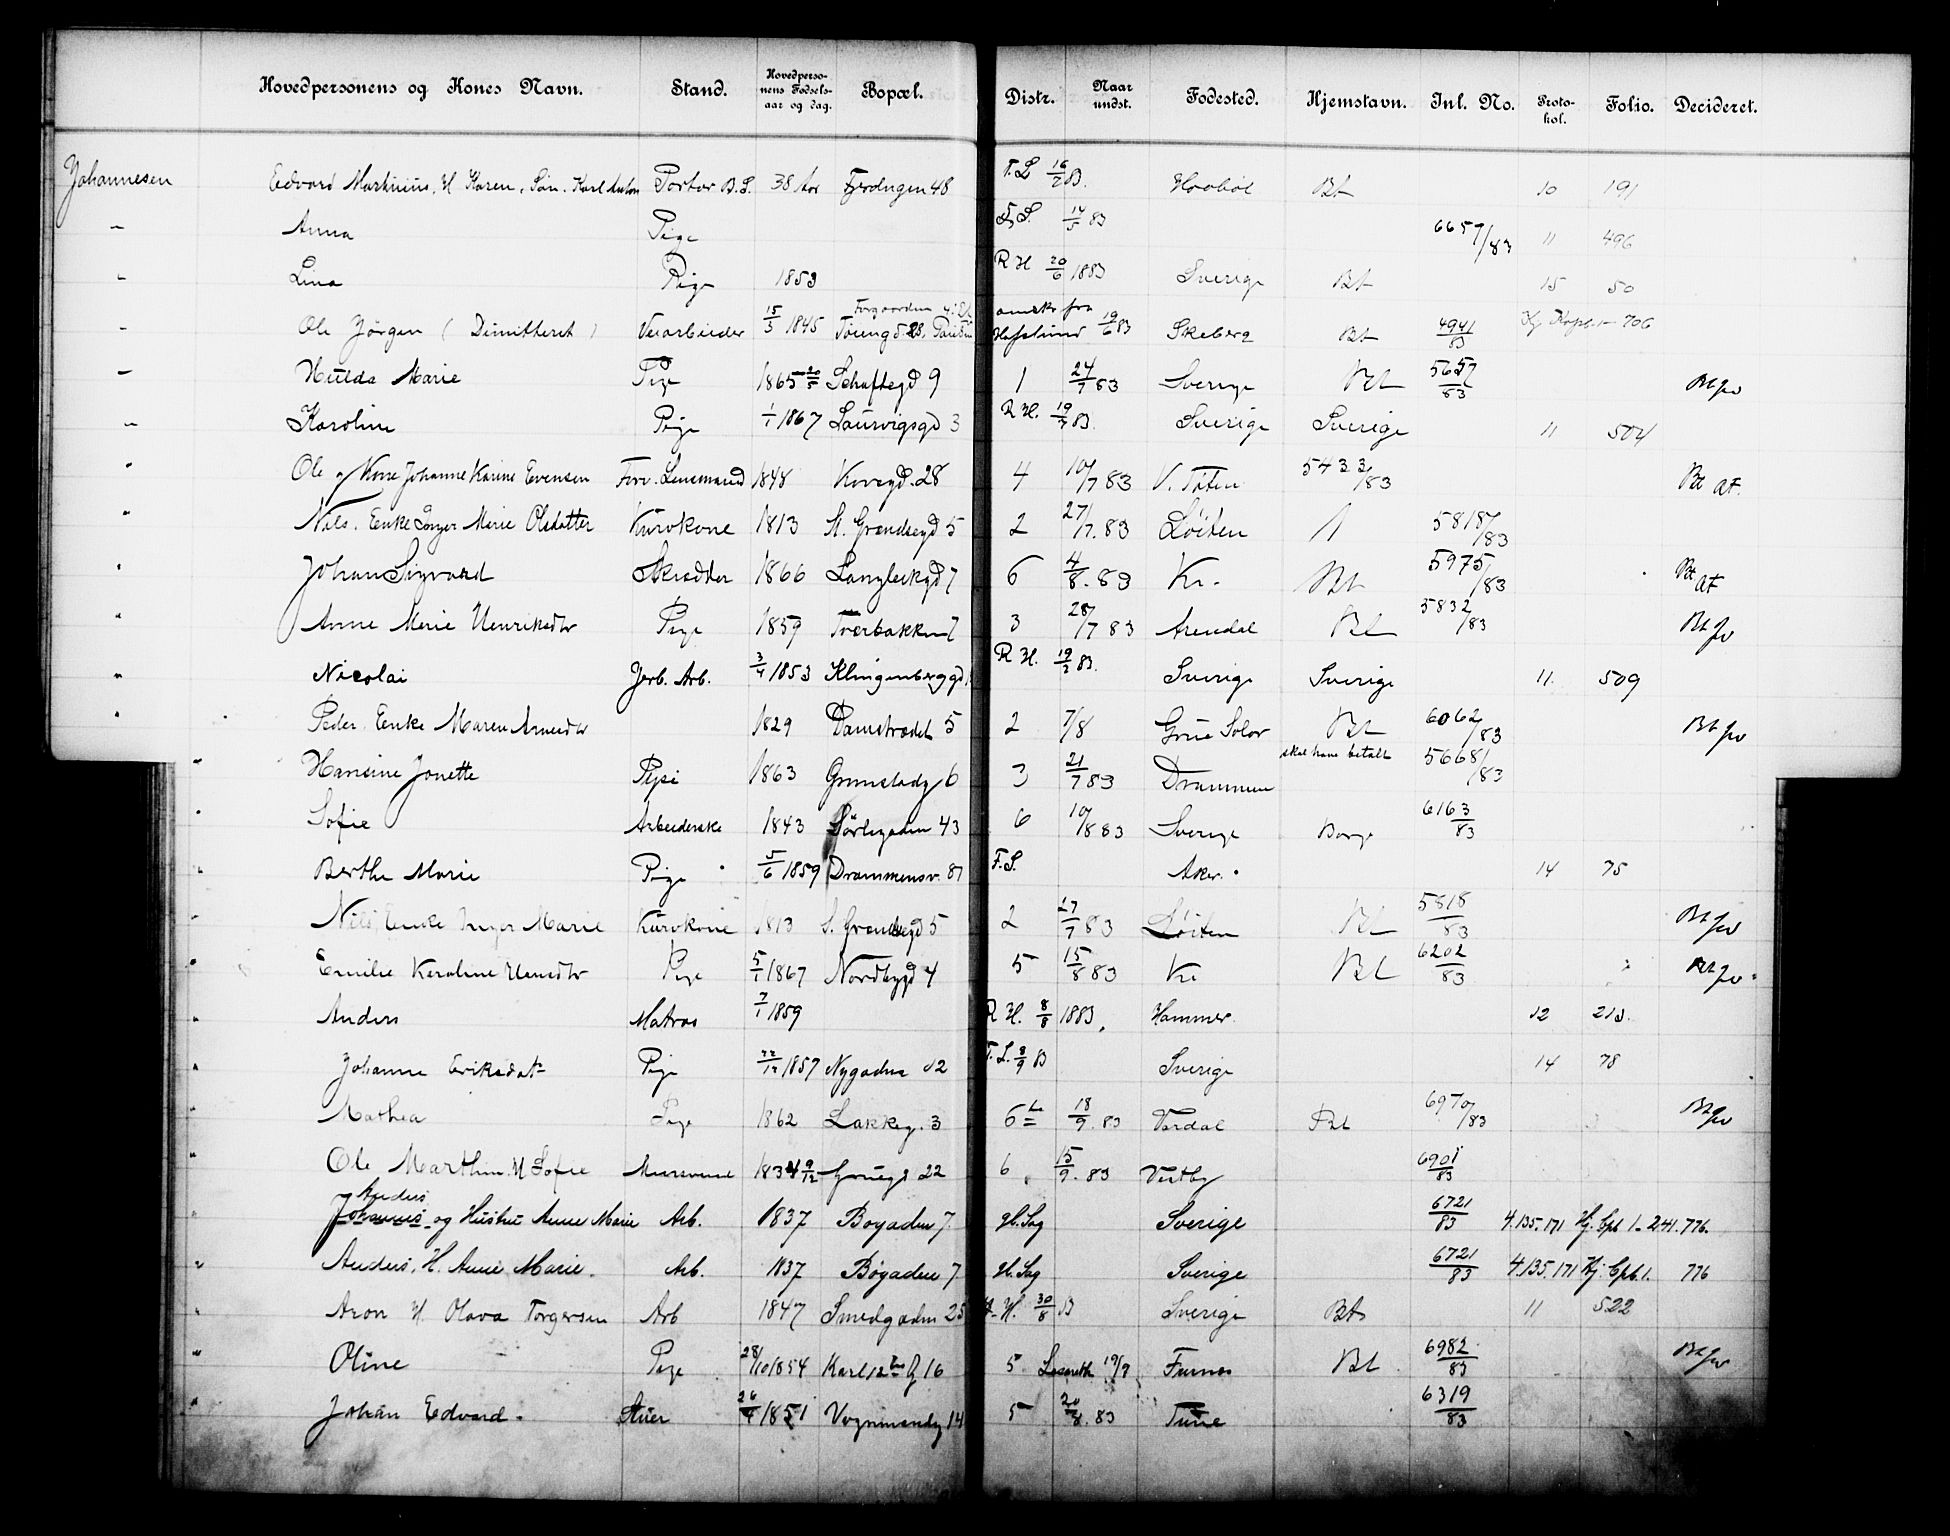 Hovedpersonens og Kones Navn. Stand. Hovedpersonens Fødselsaar og dag. Bopæl. Distr. Naar undst. Fødested. Hjemstavn. Jnl. No. Protokol. Folio. Decideret.
Johannesen Edvard Martinius, H Karen, Søn. Karl Anton Portør B.S. 38 Aar 48 T.L 16/2 83. Haabøl Bt 10 191
" Anna Pige T.S. 14/5 83 6657/83 11 496
" Lina Pige 1853 R H 20/6 1883 Sverige Bt 15 50
" Ole Jørgen (Dimitteret) Veiarbeider 15/3 1845 Tøiengd 28, Hafslund 19/6 83 Skeberg Bt 4941/83 706
" Hulda Marie Pige 1865 20/5 Schaftegd 9 1 24/7 83 Sverige Bt 5657/83 Bt
" Karoline Pige 1/1 1867 Laurvigsgd 3 R H. 19/7 83. Sverige Sverige 11 504
" Ole og Kone Johanne Karine Evensen Forv. Lensmand 1848 28 4 10/7 83 V. Toten 5433/83 Bt at.
" Nils. Enke Inger Marie Olsdatter Kurvkone 1813 St. Grændsegd 5 2 27/7. 83 Løiten 5818/83
" Johan Sigvard Skrædder 1866 Langleikgd 7 6 4/8. 83 Kr. Bt 5975/83 Bt at
" Anne Marie Henriksdtr Pige 1859 Tværbakken 7 3 28/7 83 Arendal Bt 5832/83 Bt
" Nicolai Jerb. Arb. 3/4 1853 Klingenberggd R H. 19/7 83. Sverige Sverige 11. 509
" Peder. Enke Maren Arnesdtr 1829 Damstrædet 5 2 7/8 Grue Solør Bt 6062/83 Bt
" Hansine Jonette Pige 1863 Grimstadg 6 3 21/7 83 Drammen skal have betalt 5668/83
" Sofie Arbeiderske 1843 Sørligaden 43 6 10/8 83 Sverige Borge 6163/83
" Berthe Marie Pige 5/6 1859 Drammensv. 87 F.S. Aker. 14 75
" Nils Enke Inger Marie Kurvkone 1813 S. Grændsegd 5 2 27/7 83 Løiten Bt 5818/83 Bt
" Emilie Karoline Hansdtr Pige 5/1 1867 Nordbygd 4 5 15/8 83 Kr Bt 6202/83 Bt
" Anders Matros 7/1 1859 R H. 8/8 1883. Hammer. 12 213.
" Johanne Eriksdat Pige 22/12 1857 Nygaden 12 T.L. 8/9 83 Sverige 14 78
" Mathea Pige 1862 Lakkeg. 3 6te 18/9. 83 Vardal Bt 6970/83 Bt
" Ole Marthin. H Sofie Muursvend 1834 9/12 Gruegd 22 6 15/9. 83 Vestby 6901/83
" Anders Johannes og Hustru Anne Marie Arb. 1837 Bøgaden 7. gl. Sag Sverige 6721/83 4.135.171 Hj. Cpb 1 - 241. 776.
" Anders, H. Anne Marie. Arb. 1837 Bøgaden 7 gl. Sag Sverige 6721/83 4.135.171 Hj. Cpb. 1. 776
" Aron H. Olava Torgersen Arb 1847 Smedgaden 25 H. 30/8 83 Sverige Bt 11 522
" Oline Pige 28/10 1854 Karl 12tes G 16 5 Lasareth 19/9 Furnes Bt 6982/83 Bt
" Johan Edvard. Stuer 26/4 1851 Vognmandsg 14 5 20/8. 83 Tune 6319/83